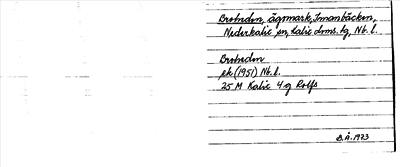 Brobedon, ägomark, Innanbäcken,
Nederkalix sn, Kalix doms. tg, Nb. l.
Brobedon
ek. (1951) Nb. l.
25 M Kalix 4 g Rolfs
B.Å. 1973